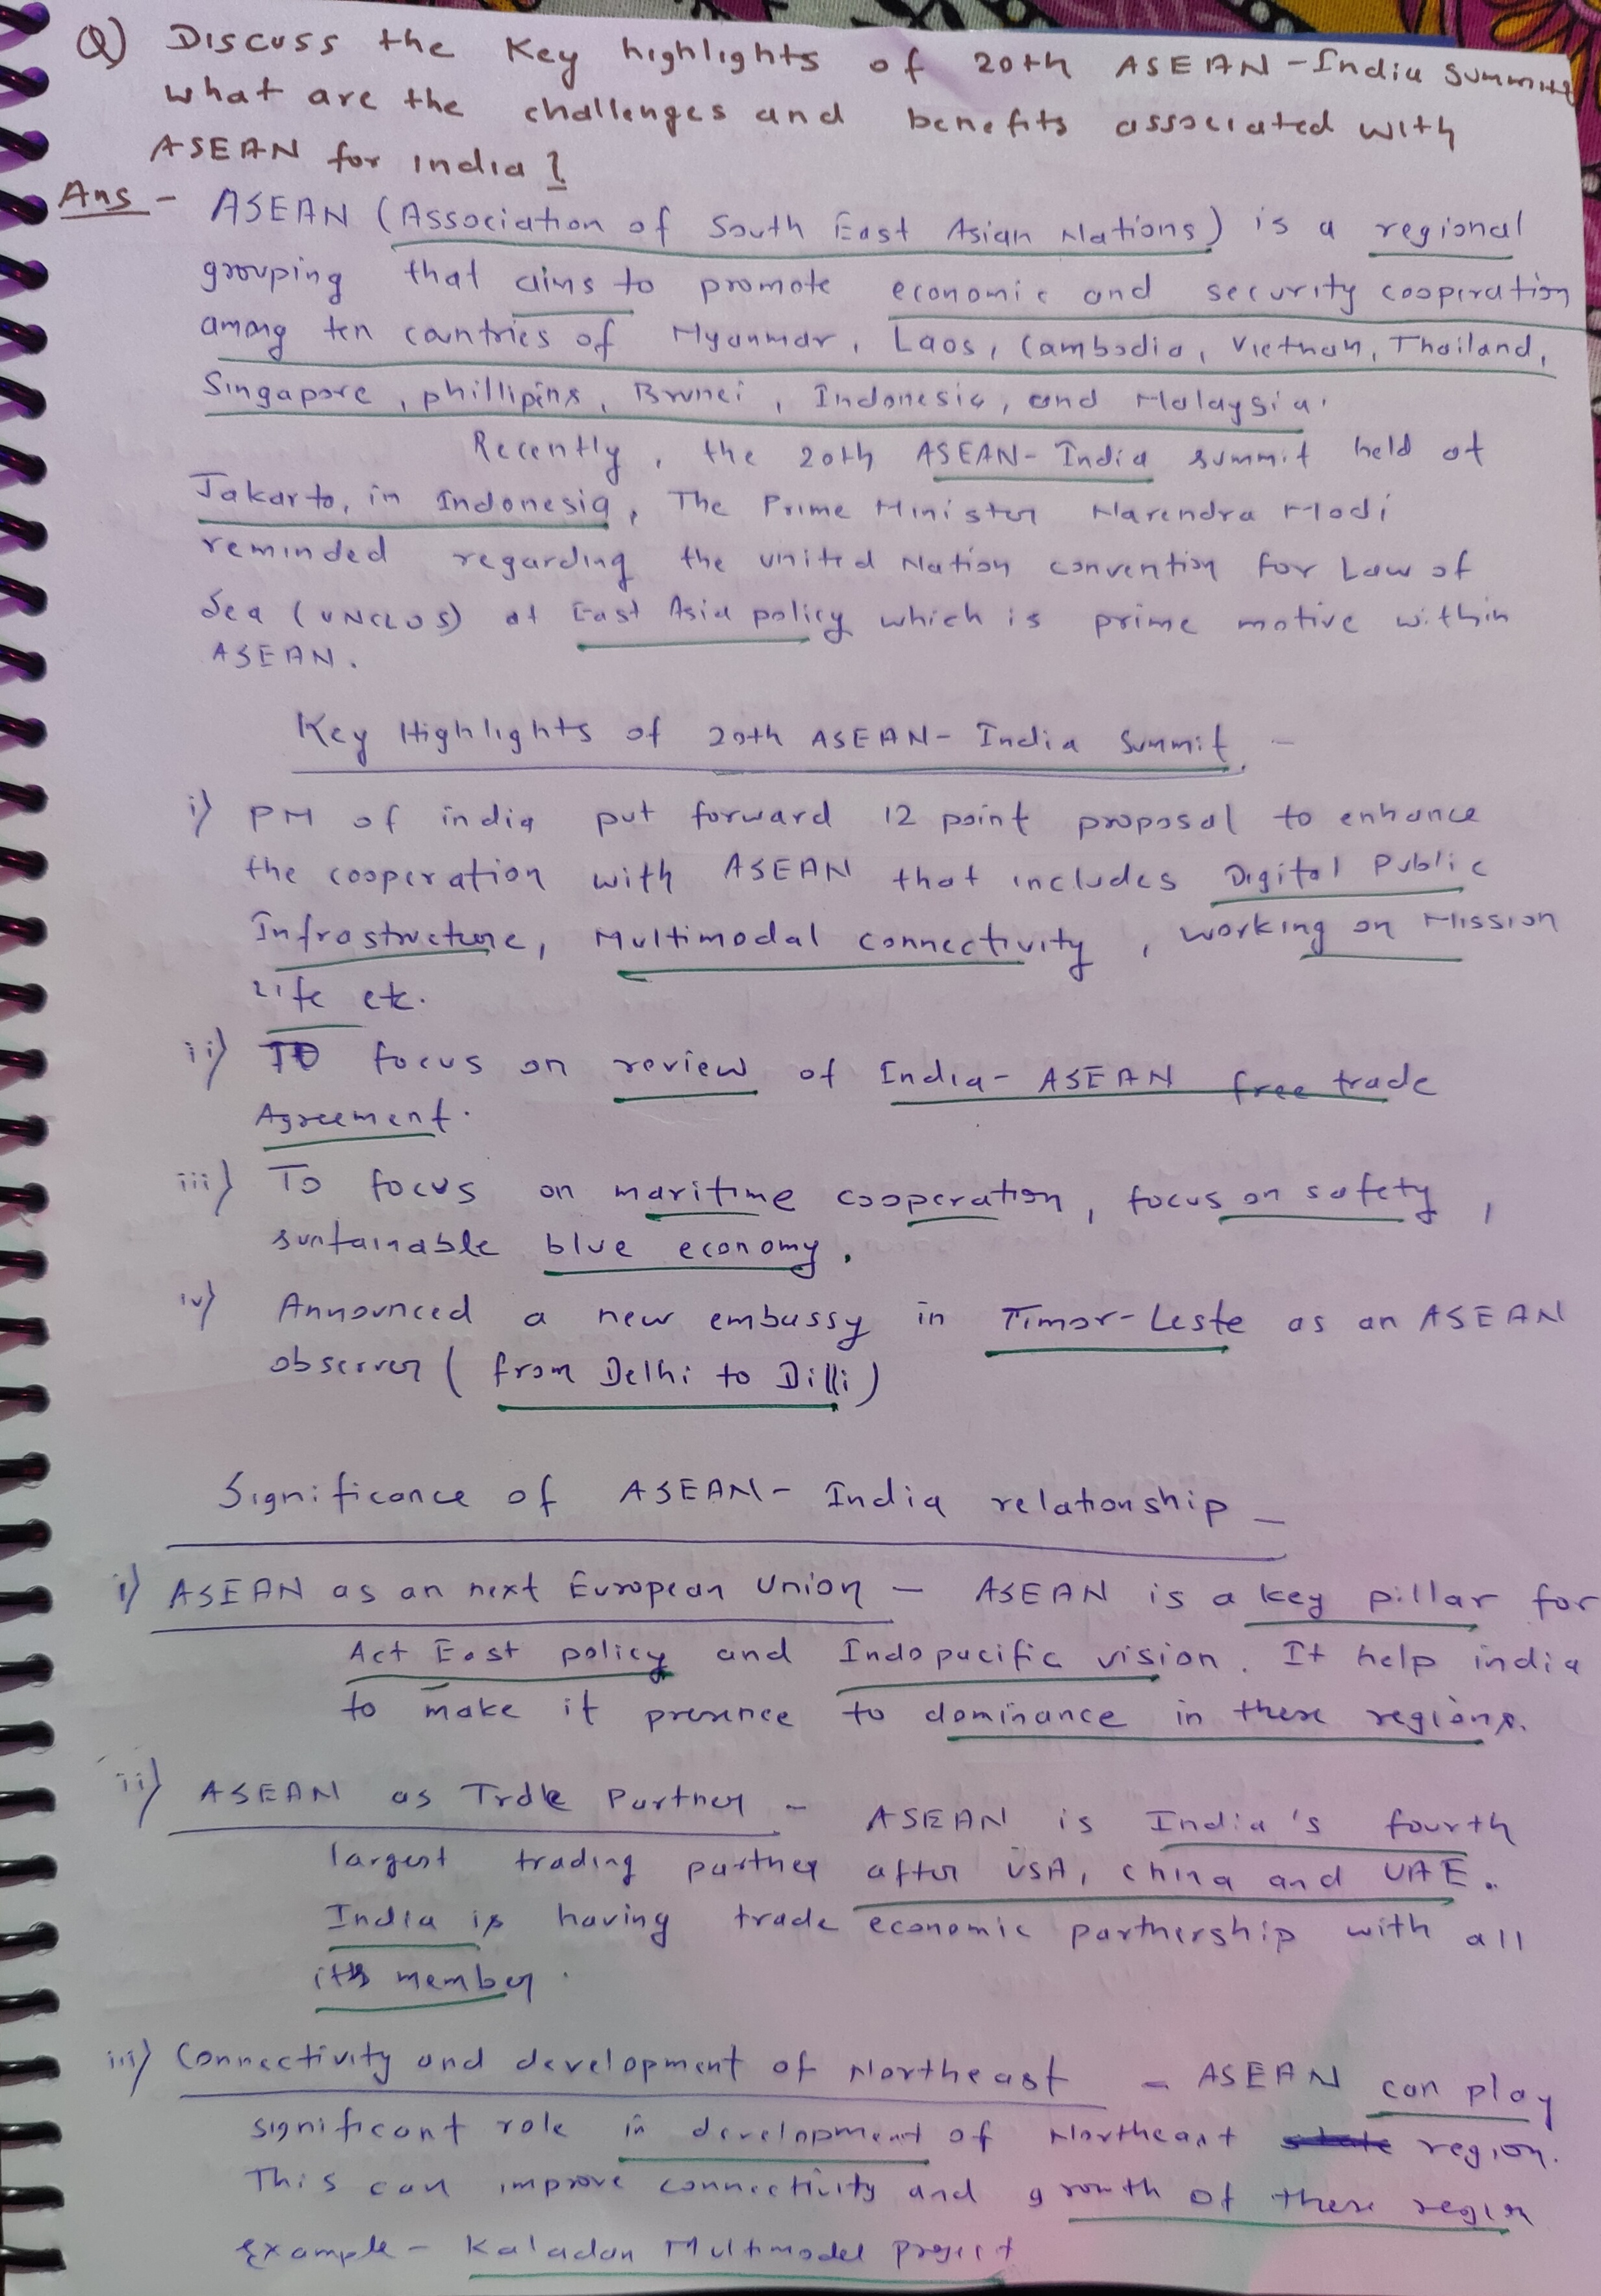 Q) Discuss the Key highlights of 20th ASEAN-India Summit
what are the challenges and benefits associated with
ASEAN for india ?
Ans - ASEAN (Association of South East Asian Nations) is a regional
grouping that aims to promote economic and security cooperation
among ten countries of Myanmar, Laos, Cambodia, Vietnam, Thailand,
Singapore, phillipins, Brunei, Indonesia, and Malaysia.
Recently, the 20th ASEAN-India summit held at
Jakarta, in Indonesia, The Prime Minister Narendra Modi
reminded regarding the united Nation convention for Law of
Sea (UNCLOS) at East Asia policy which is prime motive within
ASEAN.
Key Highlights of 20th ASEAN-India Summit -
i) PM of india put forward 12 point proposal to enhance
the cooperation with ASEAN that includes Digital Public
Infrastructure, Multimodal connectivity, working on Mission
Life etc.
ii) To focus on review of India-ASEAN free trade
Agreement.
iii) To focus on maritime cooperation, focus on safety,
suntainable blue economy.
iv) Announced a new embassy in Timor-Leste as an ASEAN
observer (from Delhi to Dilli)
Significance of ASEAN-India relationship -
i) ASEAN as an next European Union - ASEAN is a key pillar for
Act East policy and Indopacific vision. It help india
to make it presence to dominance in these regions.
ii) ASEAN as Trde Partner - ASEAN is India's fourth
largest trading partner after USA, China and UAE.
India is having trade economic partnership with all
its member.
iii) Connectivity and development of Northeast - ASEAN can play
significant role in development of Northeast state region.
This can improve connectivity and growth of these region
example - Kaladan Multimodel project